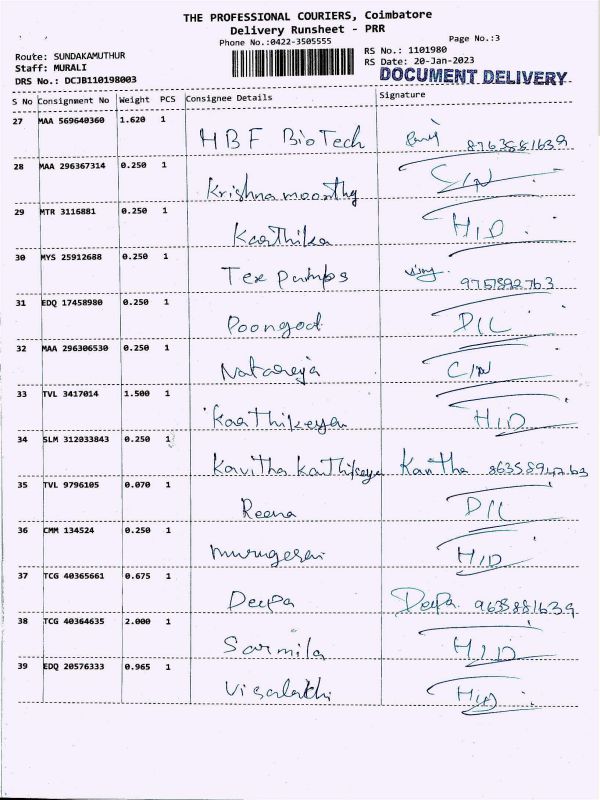 THE PROFESSIONAL COURIERS, Coimbatore
Delivery Runsheet - PRR
Phone No.:0422-3505555
Page No.:3
Route: SUNDAKAMUTHUR
RS No.: 1101980
Staff: MURALI
RS Date: 20-Jan-2023
DRS No.: DCJB110198003
DOCUMENT DELIVERY
S No Consignment No Weight PCS Consignee Details Signature
27 MAA 569640360 1.620 1
HBF BioTech 8763881639
28 MAA 296367314 0.250 1
Krishna moorthy
29 MTR 3116881 0.250 1
Kaarthika H/D
30 MYS 25912688 0.250 1
Tex Pumps
31 EDQ 17458980 0.250 1
Poongod D/L
32 MAA 296306530 0.250 1
Nataraja
33 TVL 3417014 1.500 1
Kaarthikeyan H/D
34 SLM 312033843 0.250 1
Kavitha Karthikeya
35 TVL 9796105 0.070 1
Reena D/L
36 CMM 134524 0.250 1
Murugesan H/D
37 TCG 40365661 0.675 1
Deepa Deepa 9635881639
38 TCG 40364635 2.000 1
Sarmila H/D
39 EDQ 20576333 0.965 1
Visalakhi H/D